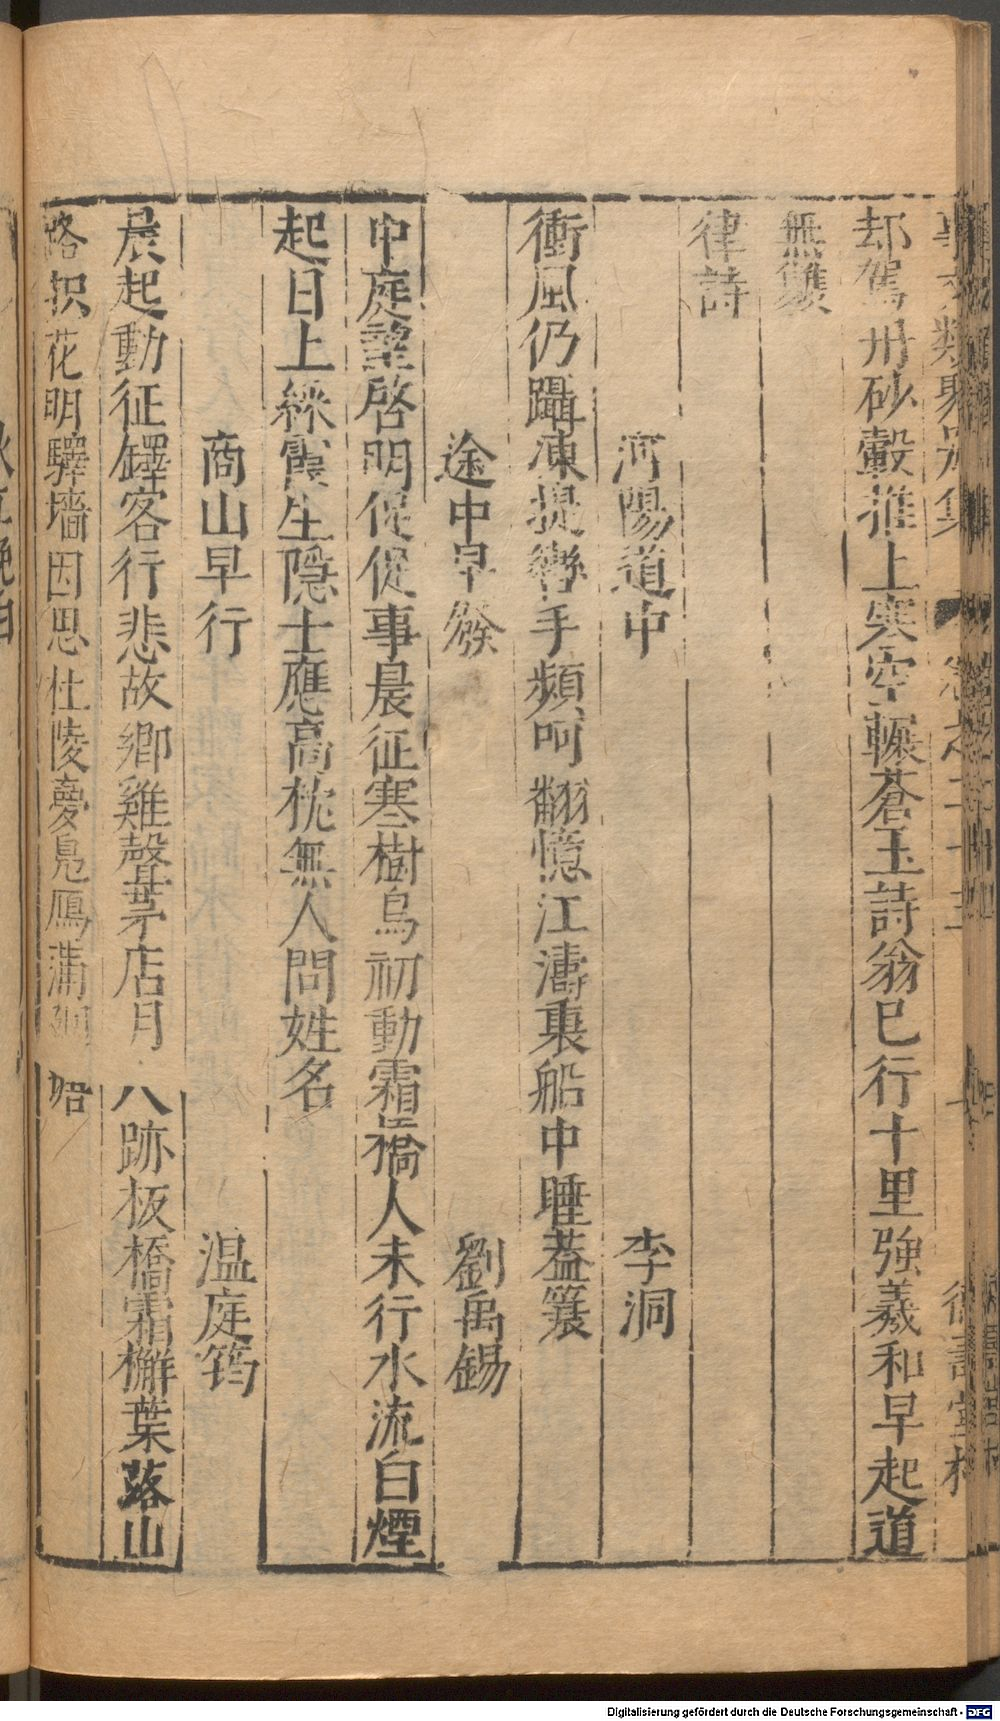 事文類聚別集 卷之二十五 德壽堂梓
却駕丹砂轂推上寒空輾蒼玉詩翁已行十里強羲和早起道
無雙
律詩
河陽道中 李洞
衝風仍躡凍提轡手頻呵翻憶江濤裏船中睡葢簑
途中早發 劉禹錫
中庭望啓明促促事晨征寒樹鳥初動霜橋人未行水流白煙
起日上綵霞生隱士應高枕無人問姓名
商山早行 温庭筠
晨起動征鐸客行悲故鄉雞聲茅店月人跡板橋霜檞葉落山
路枳花明驛墻因思杜陵夢鳧鴈滿
Digitalisierung gefördert durch die Deutsche Forschungsgemeinschaft - DFG